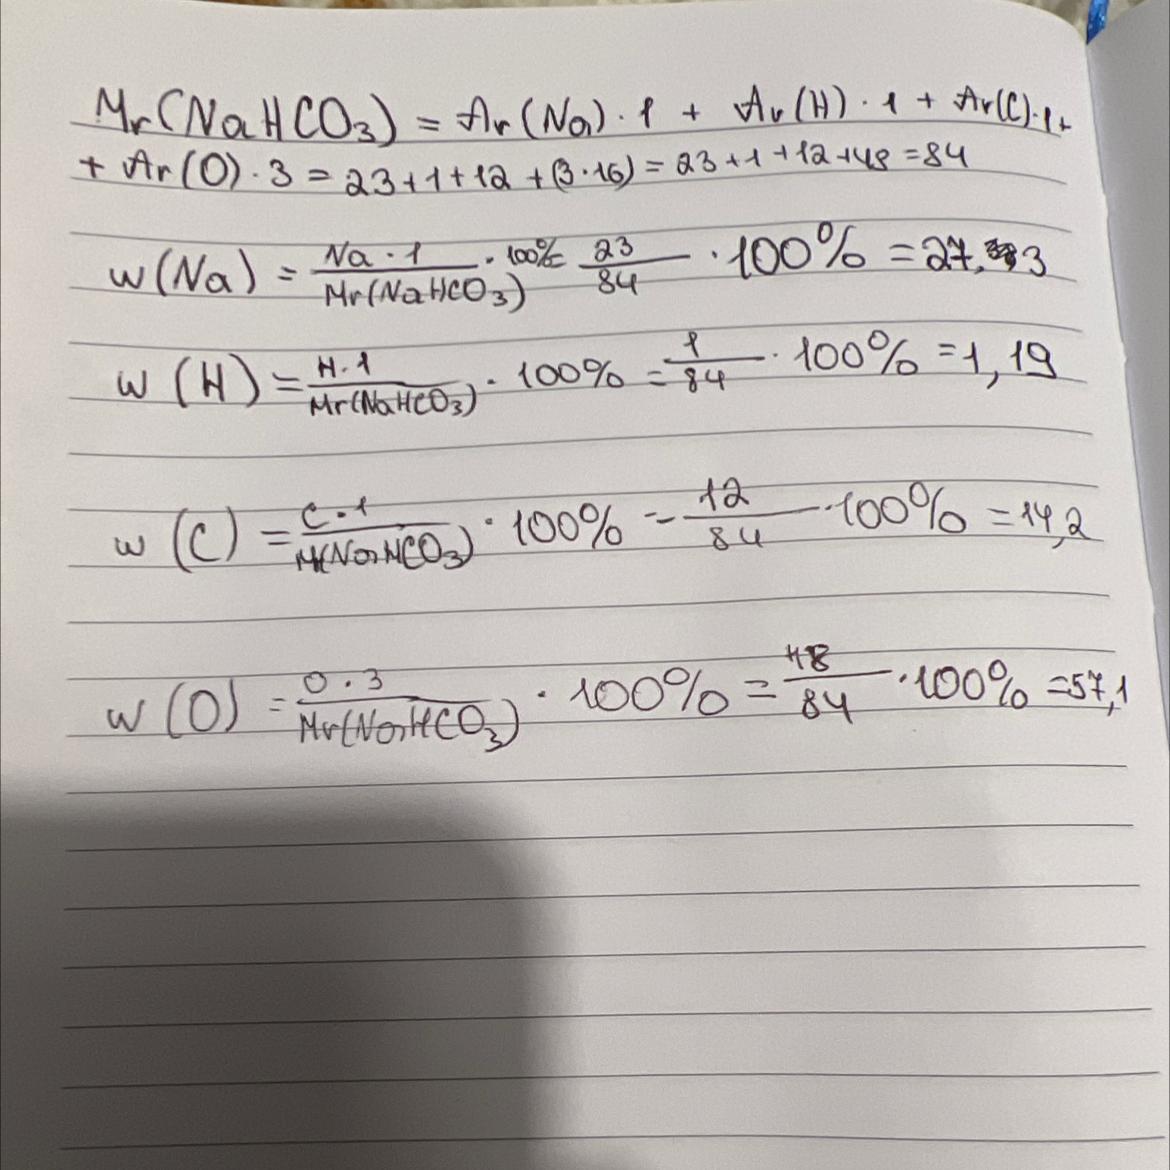 Mr(NaHCO3) = Ar(Na)·1 + Ar(H)·1 + Ar(C)·1+
+ Ar(O)·3 = 23+1+12+(3·16) = 23+1+12+48 = 84
w(Na) = Na·1/Mr(NaHCO3) · 100% = 23/84 · 100% = 27,3
w(H) = H·1/Mr(NaHCO3) · 100% = 1/84 · 100% = 1,19
w(C) = C·1/Mr(NaHCO3) · 100% = 12/84 · 100% = 14,2
w(O) = O·3/Mr(NaHCO3) · 100% = 48/84 · 100% = 57,1